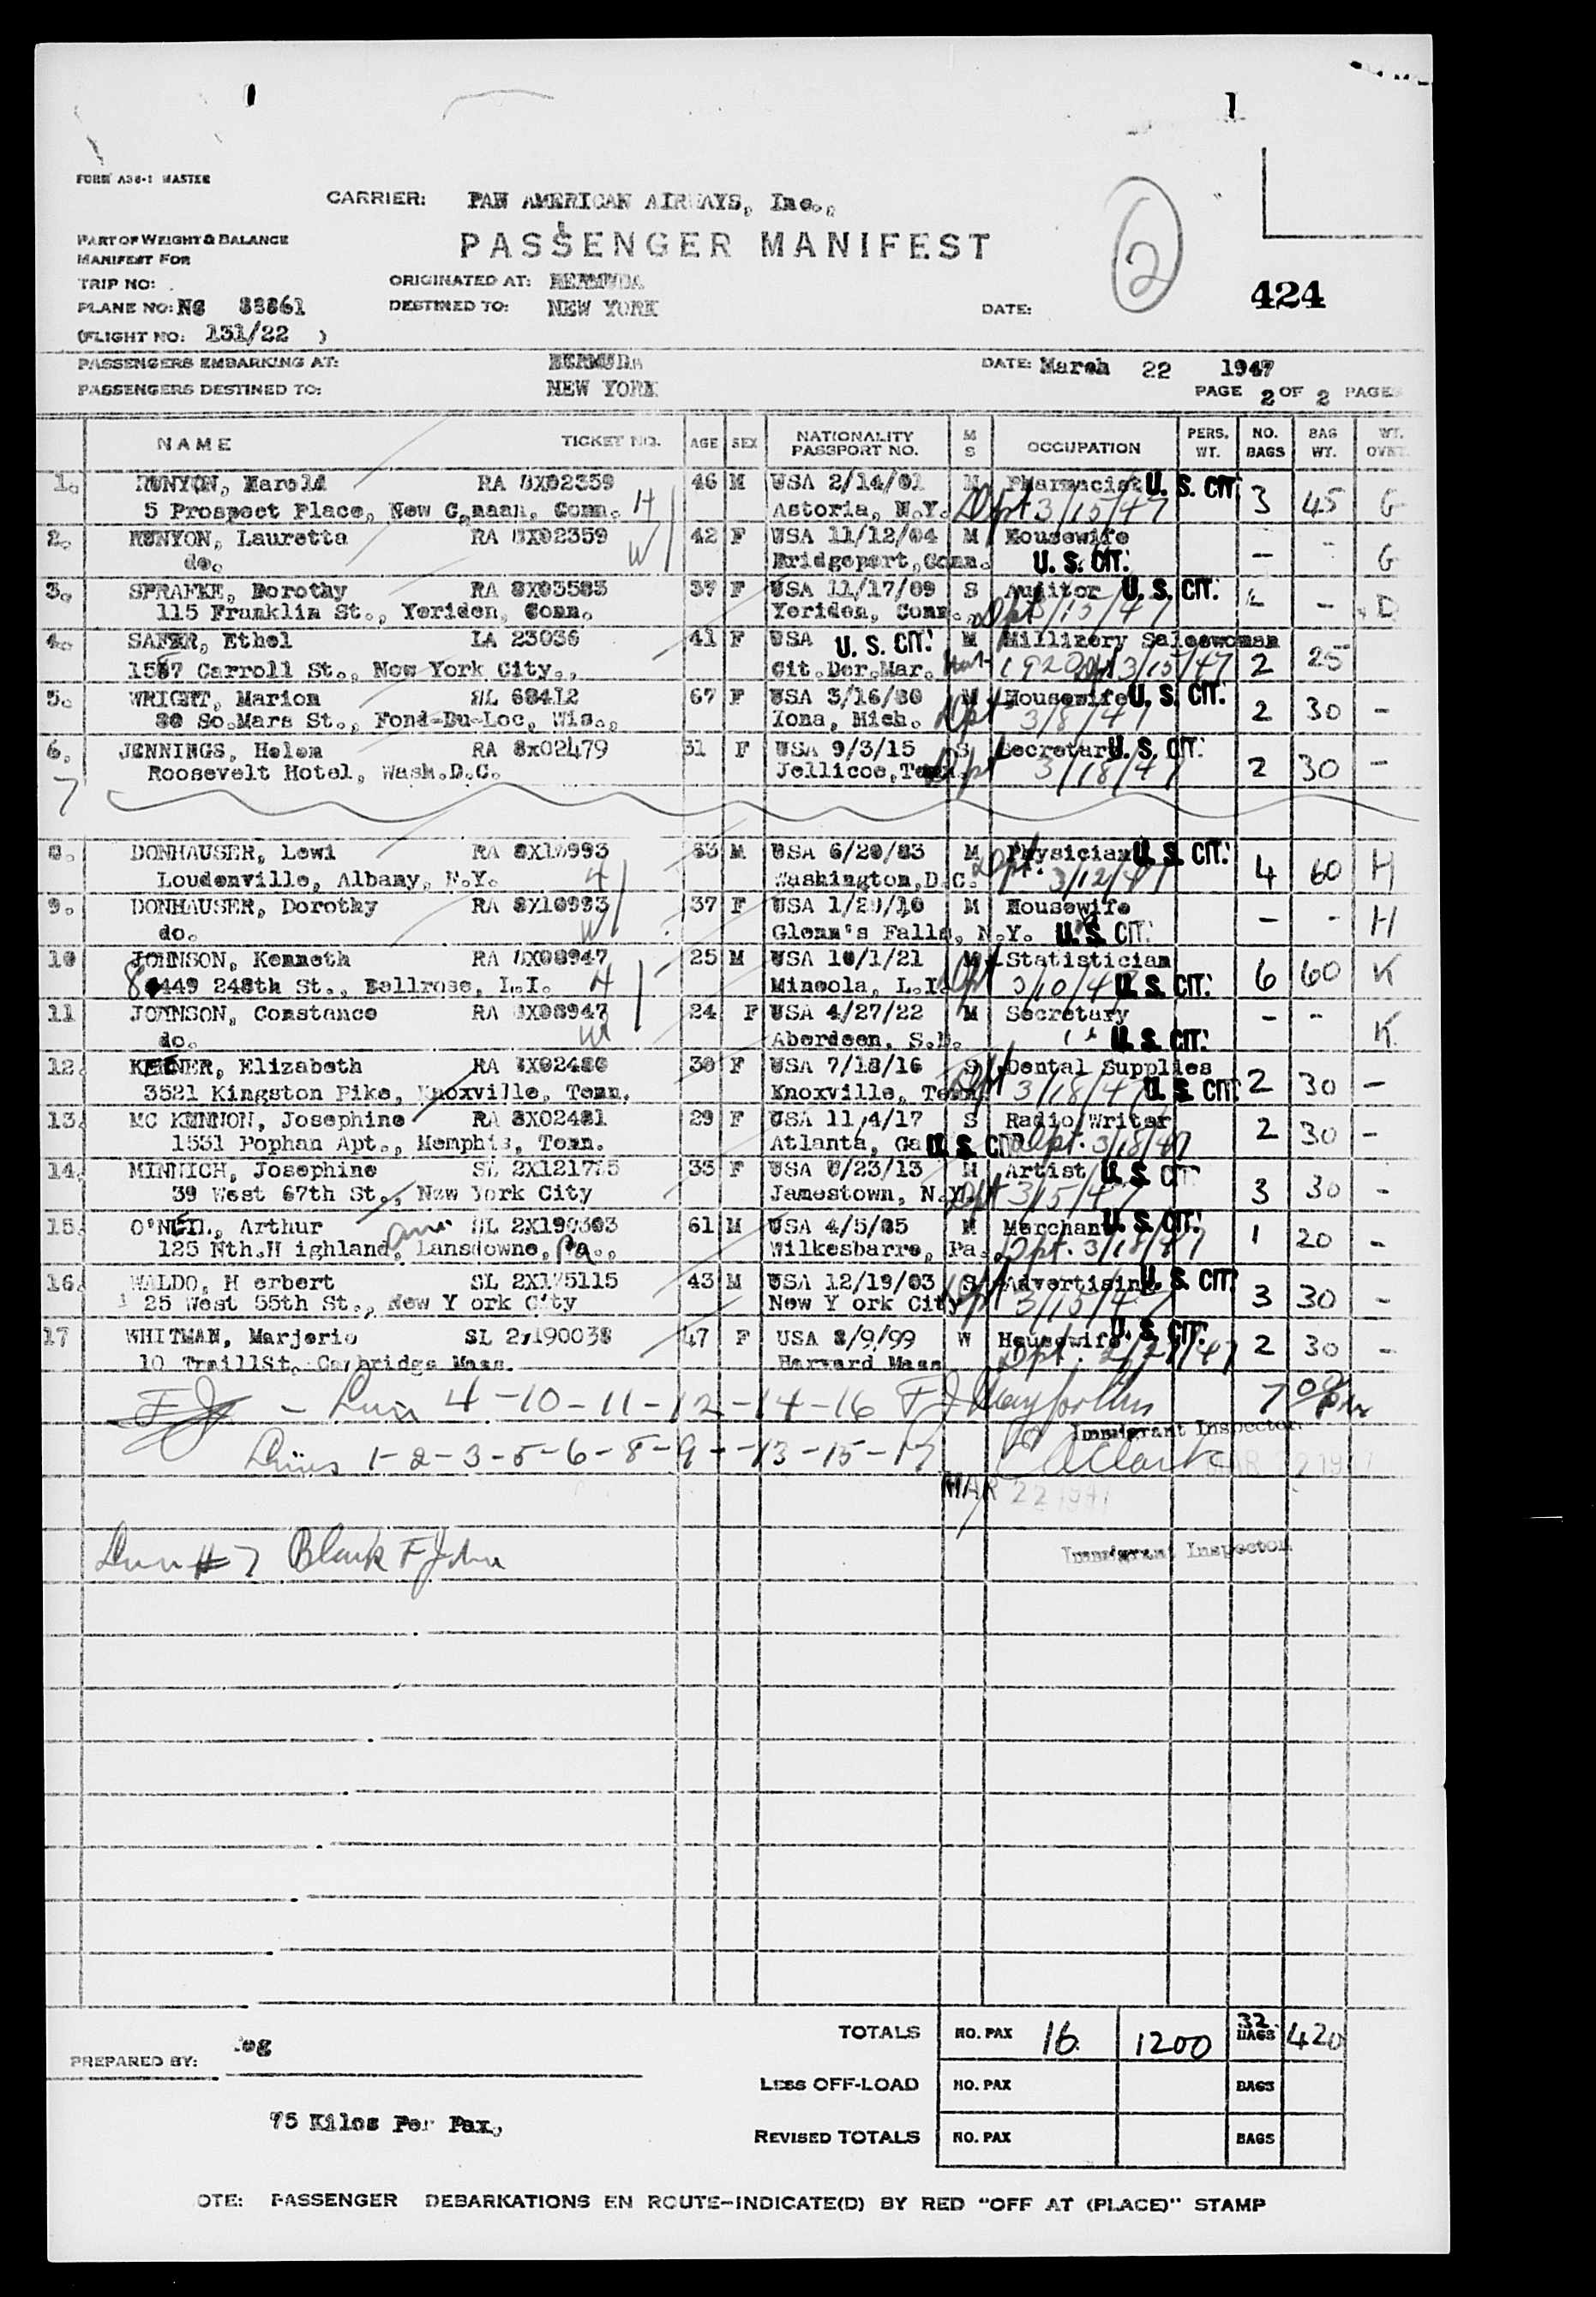 FORM A36-1 MASTER
CARRIER: PAN AMERICAN AIRWAYS, Inc.,
PART OF WEIGHT & BALANCE
MANIFEST FOR
PASSENGER MANIFEST
2
TRIP NO:
ORIGINATED AT: BERMUDA
PLANE NO: NC 88861
DESTINED TO: NEW YORK
DATE:
424
(FLIGHT NO: 131/22 )
PASSENGERS EMBARKING AT: BERMUDA
DATE: March 22 1947
PASSENGERS DESTINED TO: NEW YORK
PAGE 2 OF 2 PAGES
NAME TICKET NO. AGE SEX NATIONALITY PASSPORT NO. M S OCCUPATION PERS. WT. NO. BAGS BAG WT. WT. OVRT.
1. RUNYON, Harold RA 8X02359 46 M USA 2/14/01 M Pharmacist U. S. CIT. 3 45 G
5 Prospect Place, New C,naan, Conn. H Astoria, N.Y. Dpt 3/15/47
2. RUNYON, Lauretta RA 8X02359 42 F USA 11/12/04 M Housewife - - G
do. W Bridgeport, Conn. U. S. CIT.
3. SPRAFKE, Dorothy RA 8X03583 37 F USA 11/17/09 S Auditor U. S. CIT. - D
115 Franklin St., Yeriden, Conn. Yeriden, Conn. Dpt 3/15/47
4. SAFER, Ethel LA 23036 41 F USA U. S. CIT. M Millinery Saleswoman 2 25
1587 Carroll St., New York City., Cit.Der.Mar. 1920 Dpt 3/15/47
5. WRIGHT, Marion SL 68412 67 F USA 3/16/80 M Housewife U. S. CIT. 2 30 -
80 So.Mars St., Fond-Du-Loc, Wis., Iona, Mich. Dpt 3/8/47
6. JENNINGS, Helen RA 8x02479 31 F USA 9/3/15 S Secretary U. S. CIT. 2 30 -
Roosevelt Hotel, Wash.D.C. Jellicoe, Tenn. Dpt 3/18/47
7
8. DONHAUSER, Lewi RA 8X10993 63 M USA 6/20/83 M Physician U. S. CIT. 4 60 H
Loudenville, Albany, N.Y. H Washington,D.C. Dpt. 3/12/47
9. DONHAUSER, Dorothy RA 8X10993 37 F USA 1/20/10 M Housewife - - H
do. W Glenn's Falls, N.Y. U. S. CIT.
10 JOHNSON, Kenneth RA 8X08947 25 M USA 10/1/21 M Statistician 6 60 K
8449 248th St., Bellrose, L.I. H Mineola, L.I. Dpt 3/10/47 U. S. CIT.
11 JOHNSON, Constance RA 8X08947 24 F USA 4/27/22 M Secretary - - K
do. W Aberdeen, S.D. U. S. CIT.
12. Elizabeth RA 8X02480 30 F USA 7/18/16 S Dental Supplies 2 30 -
3521 Kingston Pike, Knoxville, Tenn. Knoxville, Tenn. Dpt 3/18/47 U. S. CIT.
13. MC KENNON, Josephine RA 8X02481 29 F USA 11/4/17 S Radio Writer 2 30 -
1531 Pophan Apt., Memphis, Tenn. Atlanta, Ga U. S. CIT. Dpt. 3/18/47
14. MINNICH, Josephine SL 2X121775 33 F USA 8/23/13 M Artist U. S. CIT. 3 30 -
39 West 67th St., New York City Jamestown, N.Y. Dpt 3/5/47
15. O'NEIL, Arthur SL 2X190303 61 M USA 4/5/85 M Merchant U. S. CIT. 1 20 -
125 Nth.H ighland, ave. Lansdowne, Pa., Wilkesbarre, Pa., Dpt. 3/18/47
16. WALDO, H erbert SL 2X175115 43 M USA 12/19/03 S Advertising U. S. CIT. 3 30 -
25 West 55th St., New Y ork City New Y ork City Dpt 3/15/47
17 WHITMAN, Marjorie SL 2X190038 47 F USA 8/9/99 W Housewife U. S. CIT. 2 30 -
10 TraillSt. Cambridge Mass. Harvard Mass Dpt. 2/21/47
- 4-10-11-12-14-16 7 00
Immigrant Inspector
Lines 1-2-3-5-6-8-9-13-15-17 Clark MAR 22 1947
MAR 22 1947
Line # 7 Blank
Immigrant Inspector
TOTALS NO. PAX 16 1200 32 BAGS 420
PREPARED BY:
LESS OFF-LOAD NO. PAX BAGS
75 Kilos Per Pax,
REVISED TOTALS NO. PAX BAGS
OTE: PASSENGER DEBARKATIONS EN ROUTE-INDICATE(D) BY RED "OFF AT (PLACE)" STAMP